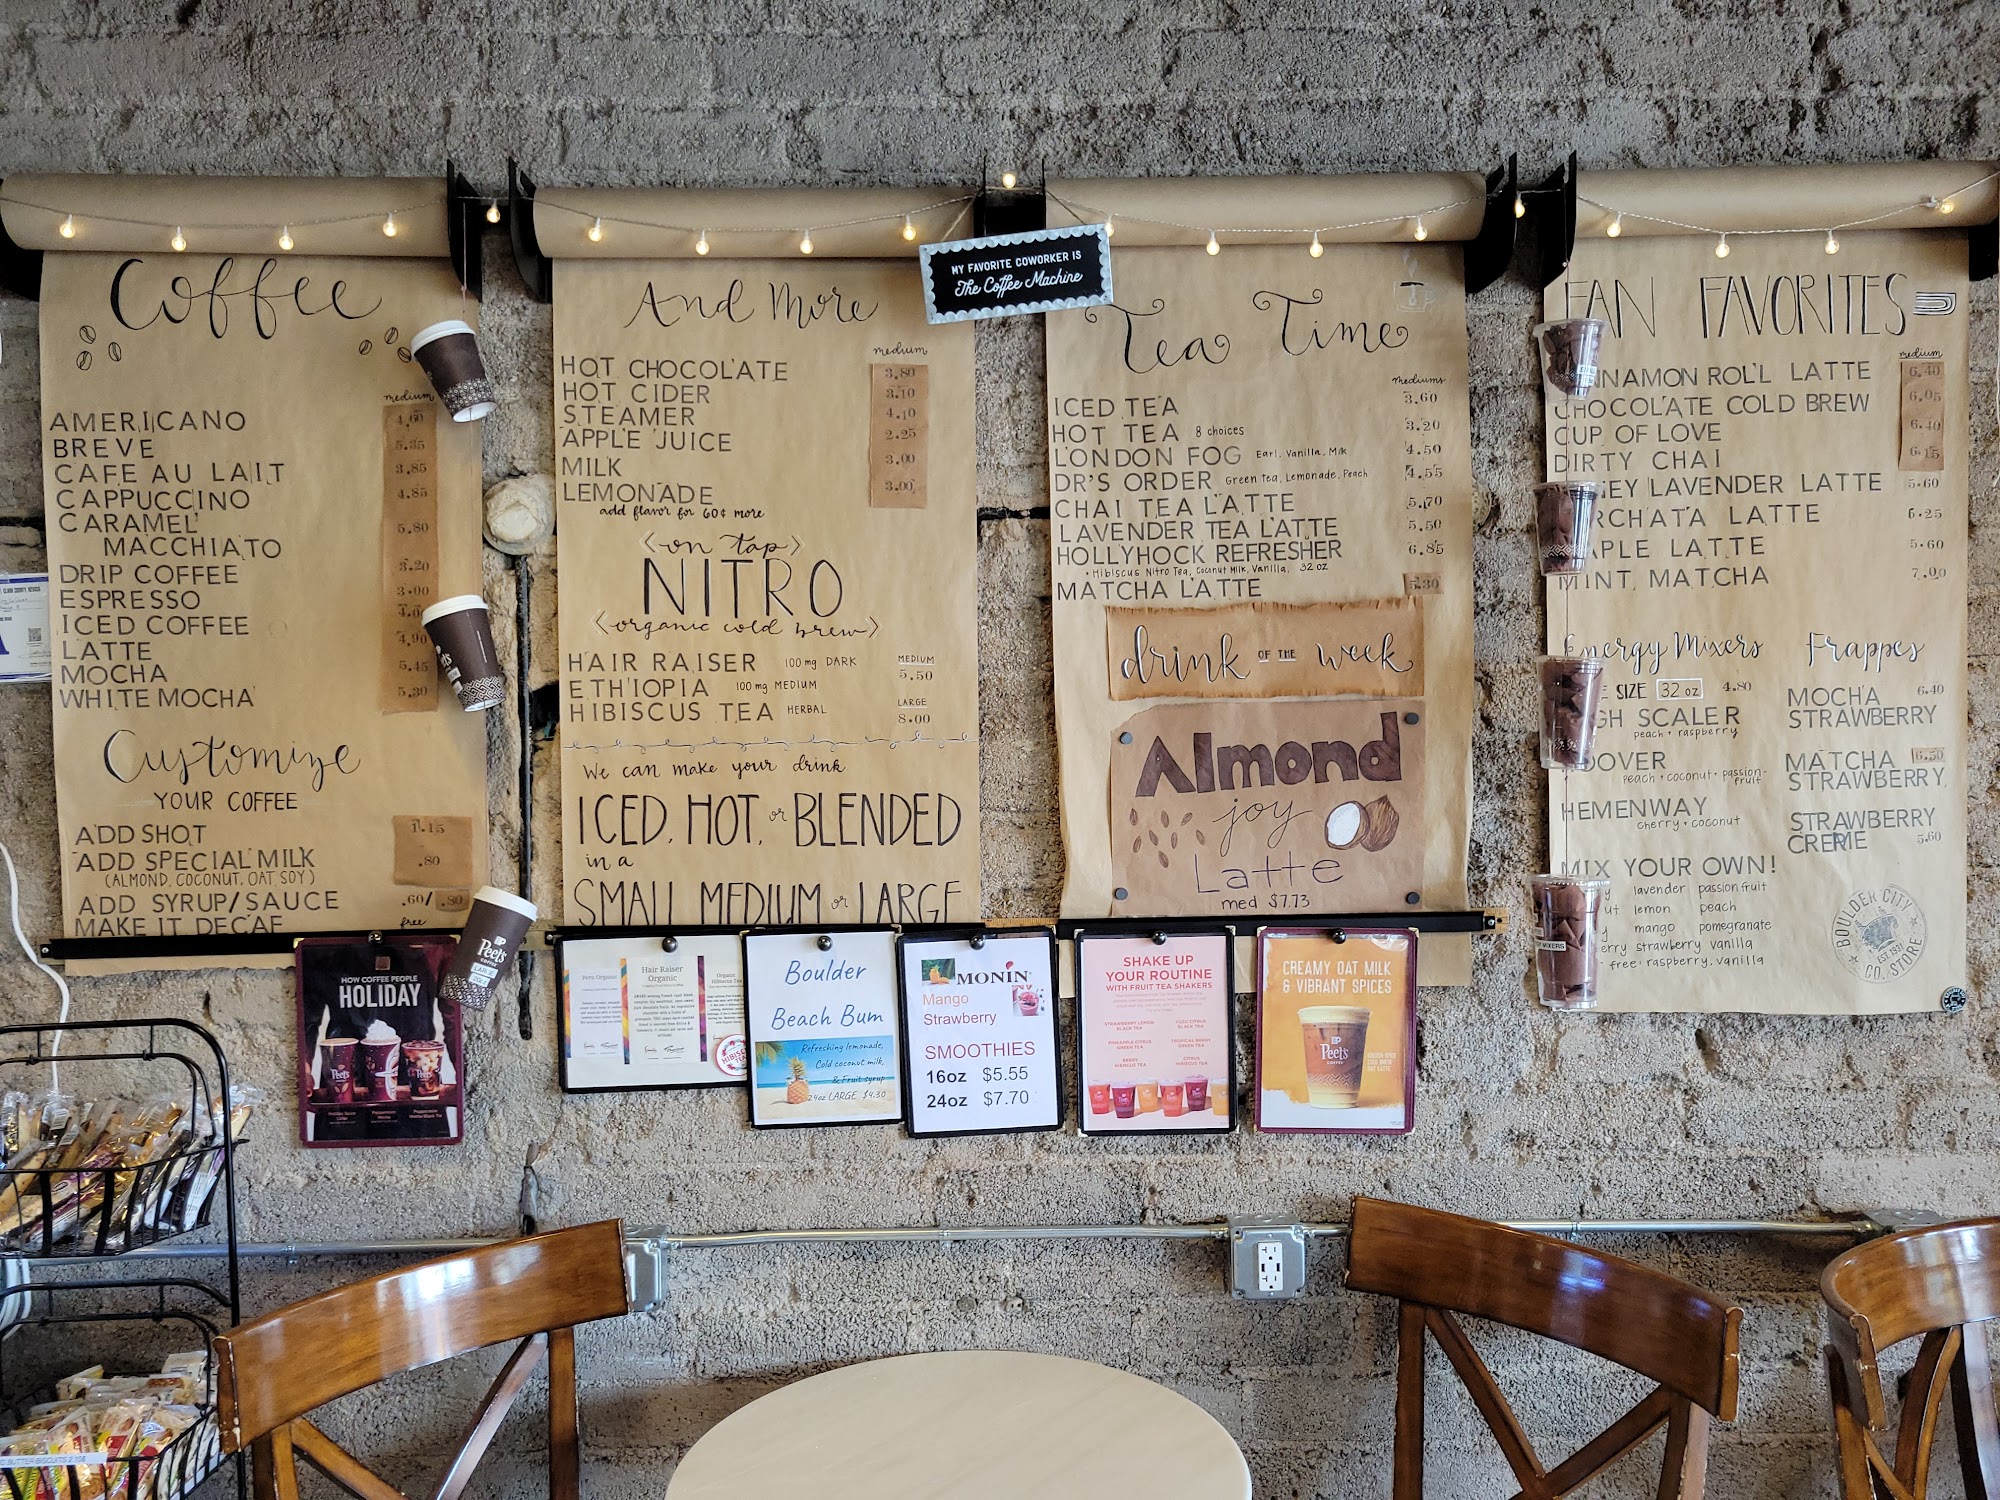 Coffee
medium
AMERICANO 4.60
BREVE 5.35
CAFE AU LAIT 3.85
CAPPUCCINO 4.85
CARAMEL
MACCHIATO 5.80
DRIP COFFEE 3.20
ESPRESSO 3.00
ICED COFFEE
LATTE 4.90
MOCHA 5.45
WHITE MOCHA 5.30
Customize
YOUR COFFEE
ADD SHOT 1.15
ADD SPECIAL MILK .80
(ALMOND, COCONUT, OAT, SOY)
ADD SYRUP/SAUCE .60/.80
MAKE IT DECAF free
And More
medium
HOT CHOCOLATE 3.80
HOT CIDER 3.10
STEAMER 4.10
APPLE JUICE 2.25
MILK 3.00
LEMONADE 3.00
add flavor for 60¢ more
<on tap>
NITRO
<organic cold brew>
HAIR RAISER 100 mg DARK MEDIUM
ETHIOPIA 100 mg MEDIUM 5.50
HIBISCUS TEA HERBAL LARGE
8.00
We can make your drink
ICED, HOT, or BLENDED
in a
SMALL MEDIUM or LARGE
MY FAVORITE COWORKER IS
The Coffee Machine
Tea Time
mediums
ICED TEA 3.60
HOT TEA 8 choices 3.20
LONDON FOG Earl, Vanilla, Milk 4.50
DR'S ORDER Green tea, Lemonade, Peach 4.55
CHAI TEA LATTE 5.70
LAVENDER TEA LATTE 5.50
HOLLYHOCK REFRESHER 6.85
• Hibiscus Nitro Tea, Coconut Milk, Vanilla, 32 oz
MATCHA LATTE 5.30
drink OF THE week
Almond
joy
Latte
med $7.73
FAN FAVORITES
medium
NNAMON ROLL LATTE 6.40
CHOCOLATE COLD BREW 6.05
CUP OF LOVE 6.40
DIRTY CHAI 6.15
EY LAVENDER LATTE 5.60
RCHATA LATTE 6.25
APLE LATTE 5.60
MINT MATCHA 7.00
Energy Mixers
SIZE 32 oz 4.80
GH SCALER
peach + raspberry
OOVER
peach + coconut + passion-
fruit
HEMENWAY
cherry + coconut
MIX YOUR OWN!
lavender passion fruit
lemon peach
mango pomegranate
strawberry vanilla
free: raspberry, vanilla
Frappes
MOCHA 6.40
STRAWBERRY
MATCHA 6.50
STRAWBERRY
STRAWBERRY
CREME 5.60
BOULDER CITY
EST. 1931
CO. STORE
HOW COFFEE PEOPLE
HOLIDAY
Peet's
COFFEE
Peru Organic
Hair Raiser
Organic
Organic
Hibiscus Tea
Boulder
Beach Bum
Refreshing lemonade,
Cold coconut milk,
& Fruit syrup
24oz LARGE $4.30
MONIN
Mango
Strawberry
SMOOTHIES
16oz $5.55
24oz $7.70
SHAKE UP
YOUR ROUTINE
WITH FRUIT TEA SHAKERS
STRAWBERRY LEMON
BLACK TEA
YUZU CITRUS
BLACK TEA
PINEAPPLE CITRUS
GREEN TEA
TROPICAL BERRY
GREEN TEA
BERRY
HIBISCUS TEA
CITRUS
HIBISCUS TEA
CREAMY OAT MILK
& VIBRANT SPICES
Peet's
COFFEE
MIXERS
BUTTER BISCUITS